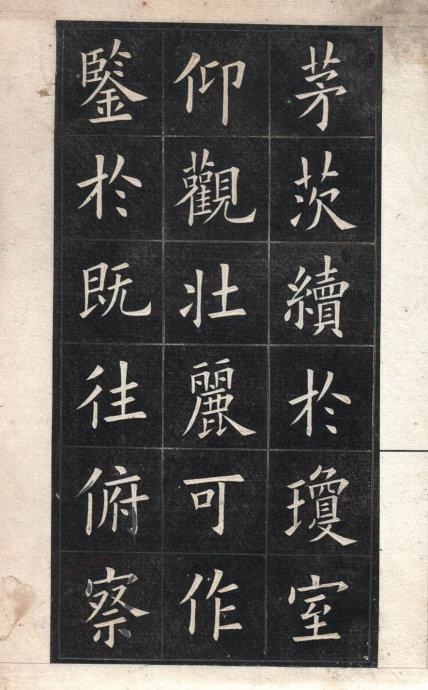 茅茨續於瓊室
仰觀壯麗可作
鑒於既往俯察